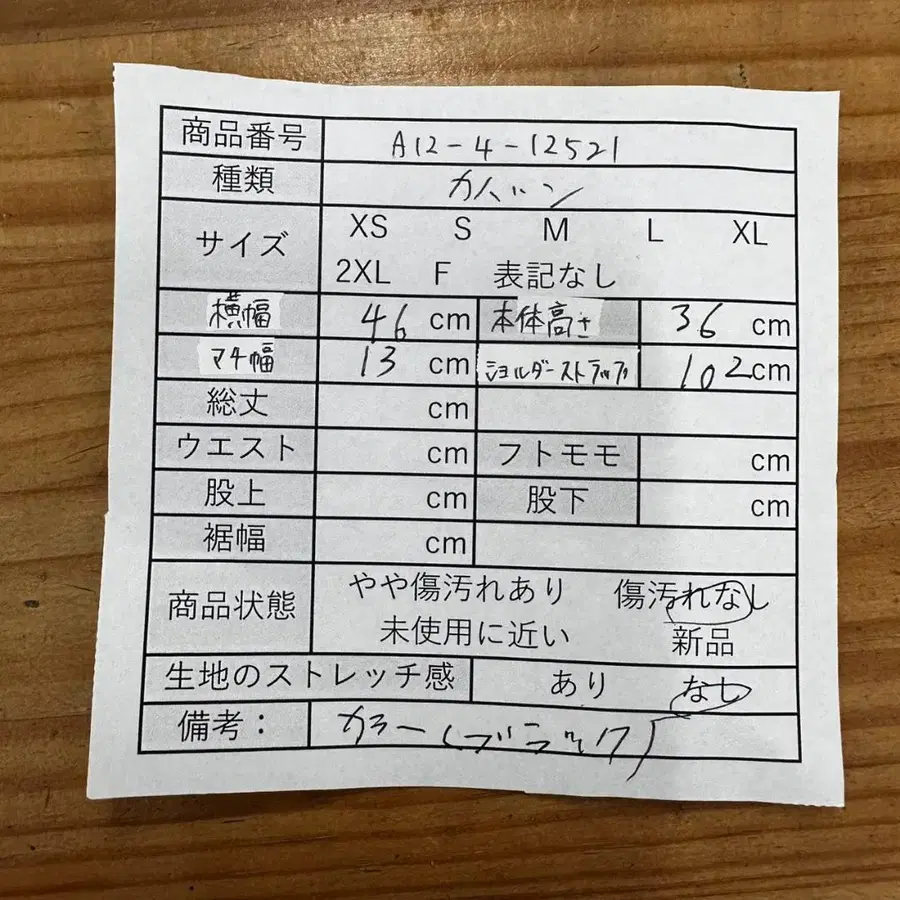 商品番号 A12-4-12521
種類 カバン
サイズ XS S M L XL
2XL F 表記なし
横幅 46 cm 本体高さ 36 cm
マチ幅 13 cm ショルダーストラップ 102cm
総丈 cm
ウエスト cm フトモモ cm
股上 cm 股下 cm
裾幅 cm
商品状態 やや傷汚れあり 傷汚れなし
未使用に近い 新品
生地のストレッチ感 あり なし
備考： カラー(ブラック)